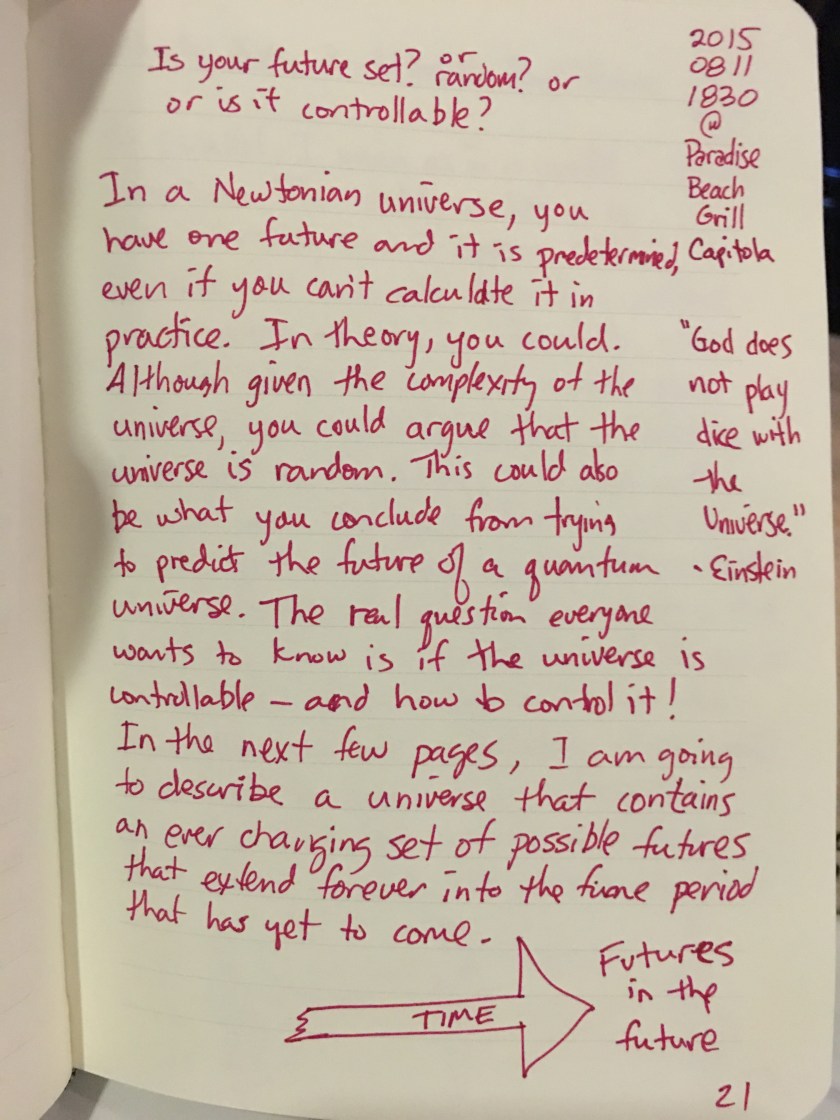 Is your future set? or random? or
or is it controllable?
2015
0811
1830
@
Paradise
Beach
Grill
Capitola
In a Newtonian universe, you
have one future and it is predetermined,
even if you can't calculate it in
practice. In theory, you could.
Although given the complexity of the
universe, you could argue that the
universe is random. This could also
be what you conclude from trying
to predict the future of a quantum
universe. The real question everyone
wants to know is if the universe is
controllable – and how to control it!
In the next few pages, I am going
to describe a universe that contains
an ever changing set of possible futures
that extend forever into the period
that has yet to come.
"God does
not play
dice with
the
Universe."
- Einstein
TIME
Futures
in the
future
21